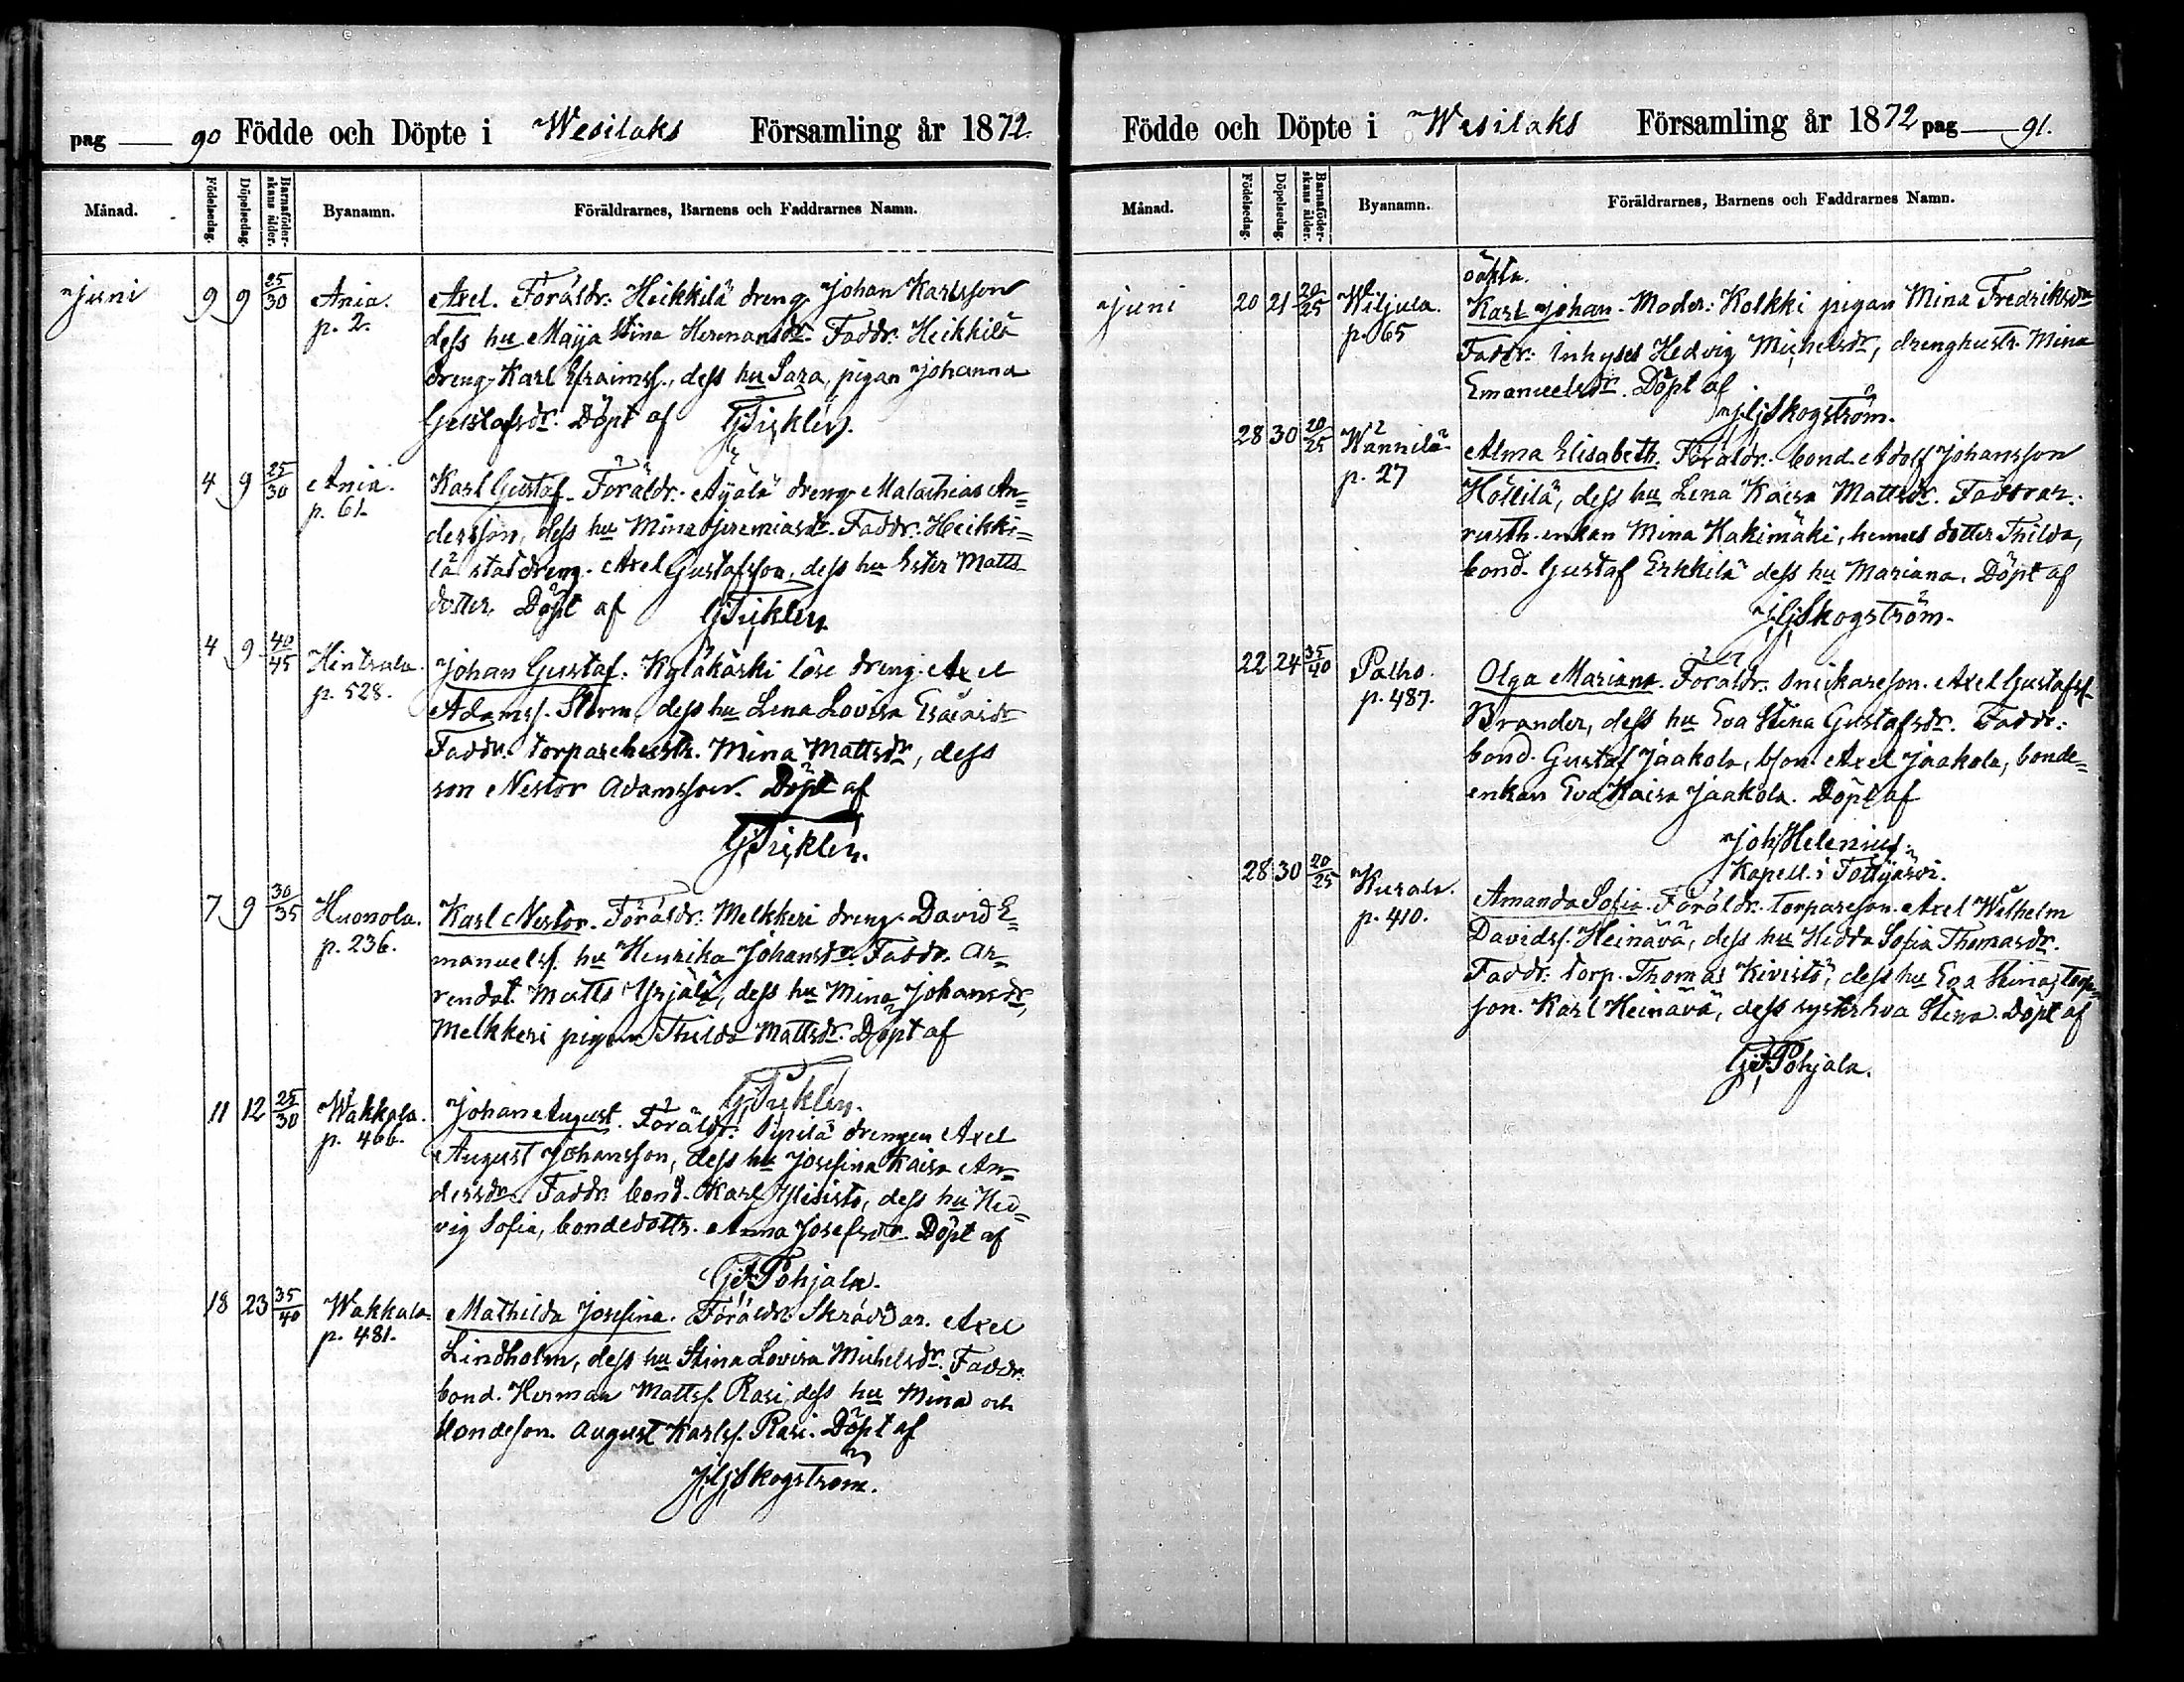 pag 90 Födde och Döpte i Wesilaks Församling år 1872.
Månad. Födelsedag. Döpelsedag. Barnaföderskans ålder. Byanamn. Föräldrarnes, Barnens och Faddrarnes Namn.
Juni 9 9 25/30 Ania. p. 2.
Axel. Föräldr: Heikkilä dreng. Johan Karlsson
dess hu Maija Stina Hermansdr. Faddr: Heikkilä
dreng Karl Efraimss., dess hu Sara, pigan Johanna
Gustafsdr. Döpt af GTicklén.
4 9 25/30 Ania. p. 61.
Karl Gustaf. Föräldr: Äijälä dreng. Malachias An=
dersson, dess hu Mina Jeremiasdr. Faddr: Heikki=
lä statdreng. Axel Gustafsson, dess hu Ester Matts
dotter. Döpt af GTicklén.
4 9 40/45 Hintsala. p. 528.
Johan Gustaf. Kyläkäski löse dreng. Axel
Adamss. Storm, dess hu Lena Lovisa Esaiasdr
Faddr. torparehustr. Mina Mattsdr, dess
son Nestor Adamsson. Döpt af
GTicklén.
7 9 30/35 Huonola. p. 236.
Karl Nestor. Föräldr: Melkkeri dreng. David E=
manuelss. hu Henrika Johansdr. Faddr. Ar=
rendat. Matts Yrjälä, dess hu Mina Johansdr,
Melkkeri pigan Thilda Mattsdr. Döpt af
GTicklén.
11 12 25/30 Wakkala. p. 466.
Johan August. Föräldr: Sipilä drengen Axel
August Johansson, dess hu Josefina Kaisa An=
dersdr. Faddr. bond. Karl Ylisisto, dess hu Hed=
vig Sofia, bondedottr. Anna Josefsdr. Döpt af
Pohjala.
18 23 35/40 Wakkala. p. 481.
Mathilda Josefina. Föräldr: Skräddar. Axel
Lindholm, dess hu Stina Lovisa Michelsdr. Faddr.
bond. Herman Mattss. Rasi, dess hu Mina och
bondeson. August Karlss. Rasi. Döpt af
JGSkogström.
Födde och Döpte i Wesilaks Församling år 1872 pag 91.
Månad. Födelsedag. Döpelsedag. Barnaföderskans ålder. Byanamn. Föräldrarnes, Barnens och Faddrarnes Namn.
oäkta.
Juni 20 21 20/25 Wiljula. p. 65
Karl Johan. Moder: Kolkki pigan Mina Fredriksdr
Faddr: Inhyses Hedvig Michelsdr, drenghustr. Mina
Emanuelsdr. Döpt af
JGSkogström.
28 30 20/25 Wännilä p. 27
Alma Elisabeth. Föräldr. bond. Adolf Johansson
Höllilä, dess hu Lena Kaisa Mattsdr. Faddrar.
rusth. enkan Mina Hakimäki, hennes dotter Thilda,
bond. Gustaf Erkkilä dess hu Mariana. Döpt af
JGSkogström.
22 24 35/40 Palho. p. 487.
Olga Mariana. Föräldr: Snickareson. Axel Gustafss.
Brander, dess hu Eva Stina Gustafsdr. Faddr:
bond. Gustaf Jaakola, bson. Axel Jaakola, bonde=
enkan Eva Kaisa Jaakola. Döpt af
Joh. Helenius.
Kapell. i Tottijärvi.
28 30 20/25 Kurala. p. 410.
Amanda Sofia. Föräldr. Torpareson. Axel Wilhelm
Davidss. Heinävä, dess hu Hedda Sofia Thomasdr.
Faddr: torp. Thomas Kivistö, dess hu Eva Stina, torp=
son. Karl Heinävä, dess syster Eva Stina. Döpt af
Pohjala.